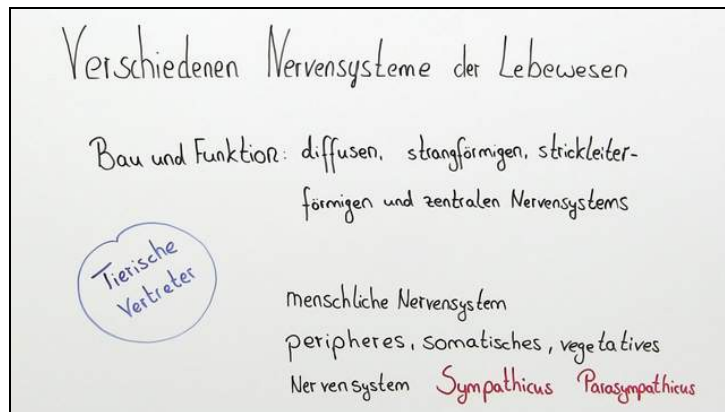 Verschiedenen Nervensysteme der Lebewesen
Bau und Funktion: diffusen, strangförmigen, strickleiter-
förmigen und zentralen Nervensystems
Tierische
Vertreter
menschliche Nervensystem
peripheres, somatisches, vegetatives
Nervensystem Sympathicus Parasympathicus